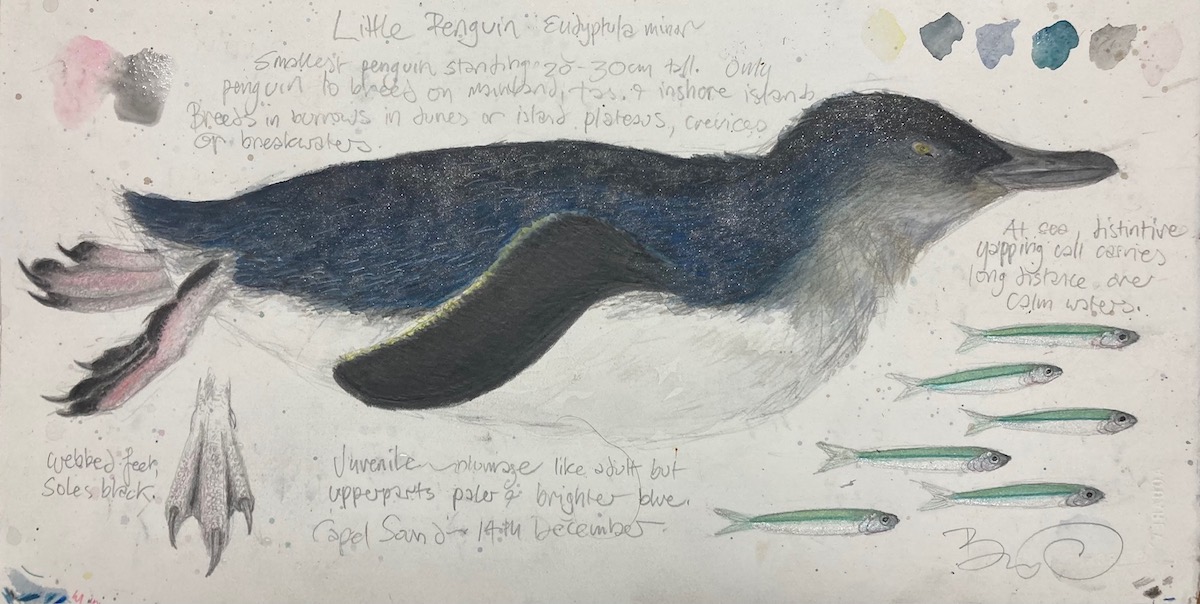 Little Penguin Eudyptula minor
Smallest penguin standing 25-30cm tall. Only
penguin to breed on mainland, tas. & inshore islands
Breeds in burrows in dunes or island plateaus, crevices
or breakwaters
At sea, distintive
yapping call carries
long distance over
calm waters.
Webbed feet,
Soles black.
Juvenile plumage like adult but
upperparts paler & brighter blue.
Capel Sand 14th December